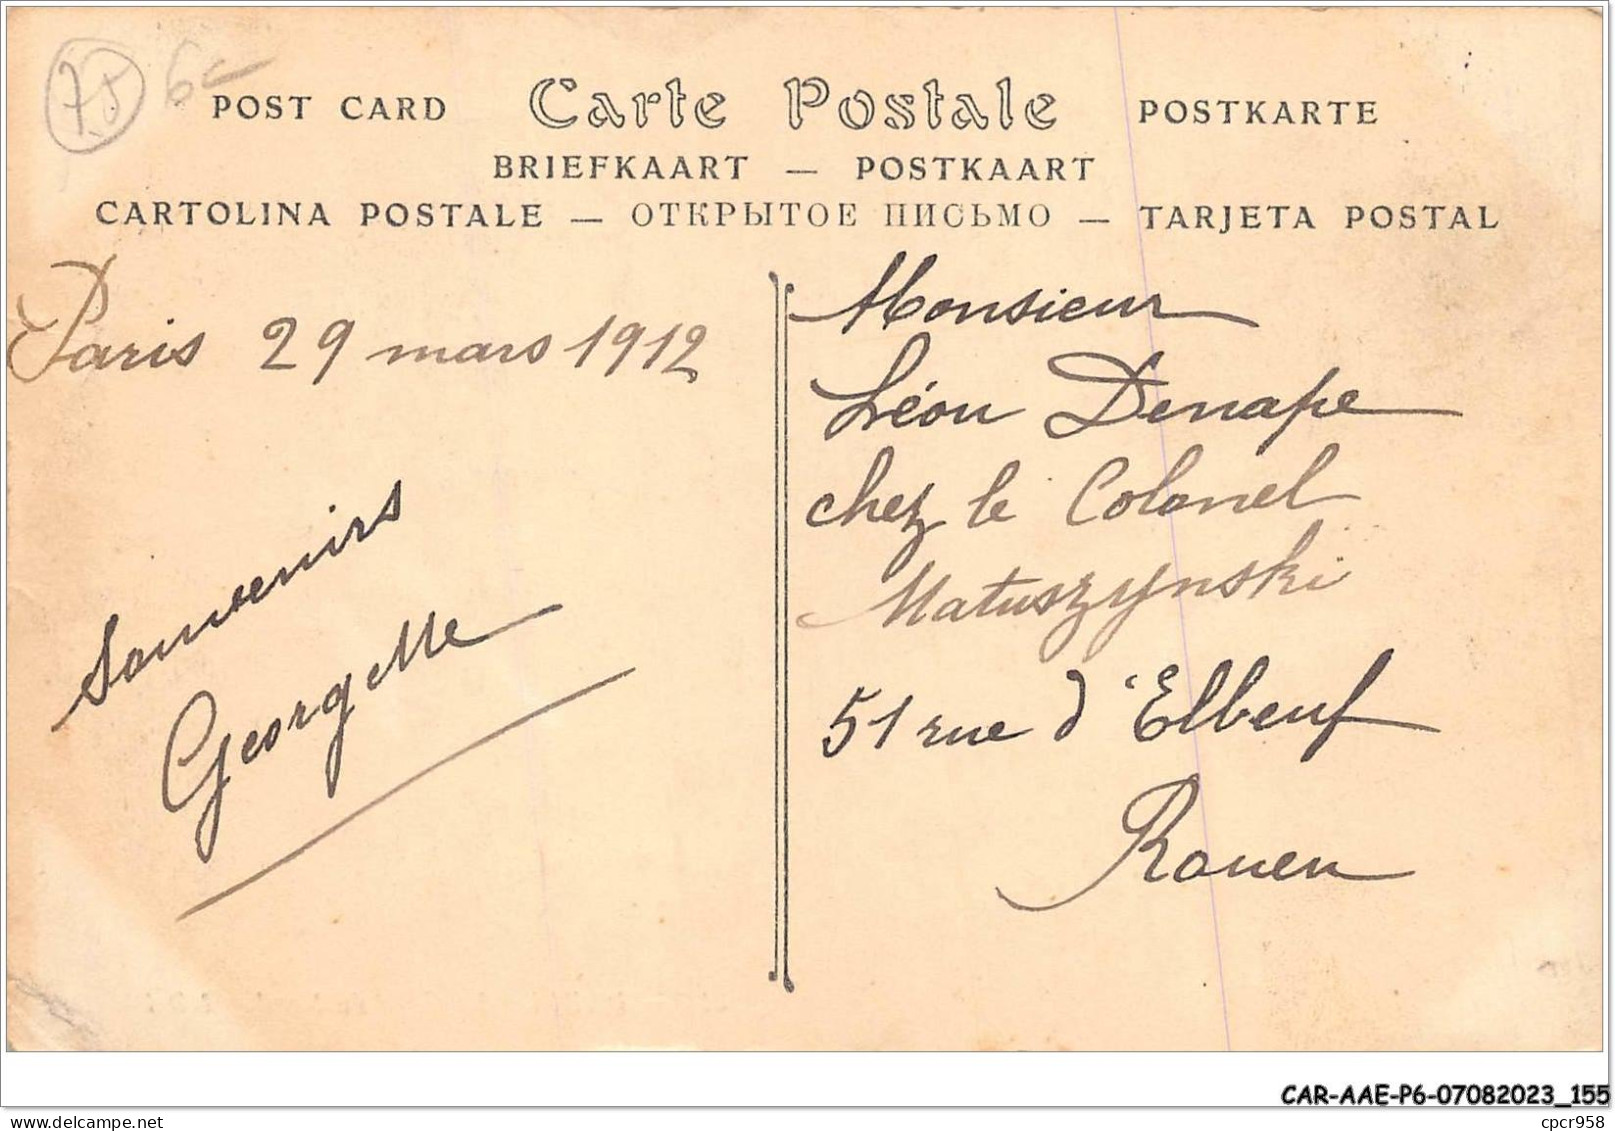 75 6-
POST CARD Carte Postale POSTKARTE
BRIEFKAART — POSTKAART
CARTOLINA POSTALE — ОТКРЫТОЕ ПИСЬМО — TARJETA POSTAL
Paris 29 mars 1912
Souvenirs
Georgette
Monsieur
Léon Denape
chez le Colonel
Matuszynski
51 rue d'Elbeuf
Rouen
CAR-AAE-P6-07082023_155
cpcr958